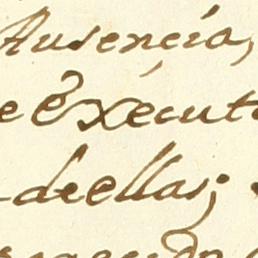 Ausençia,
e Executa
deellas;